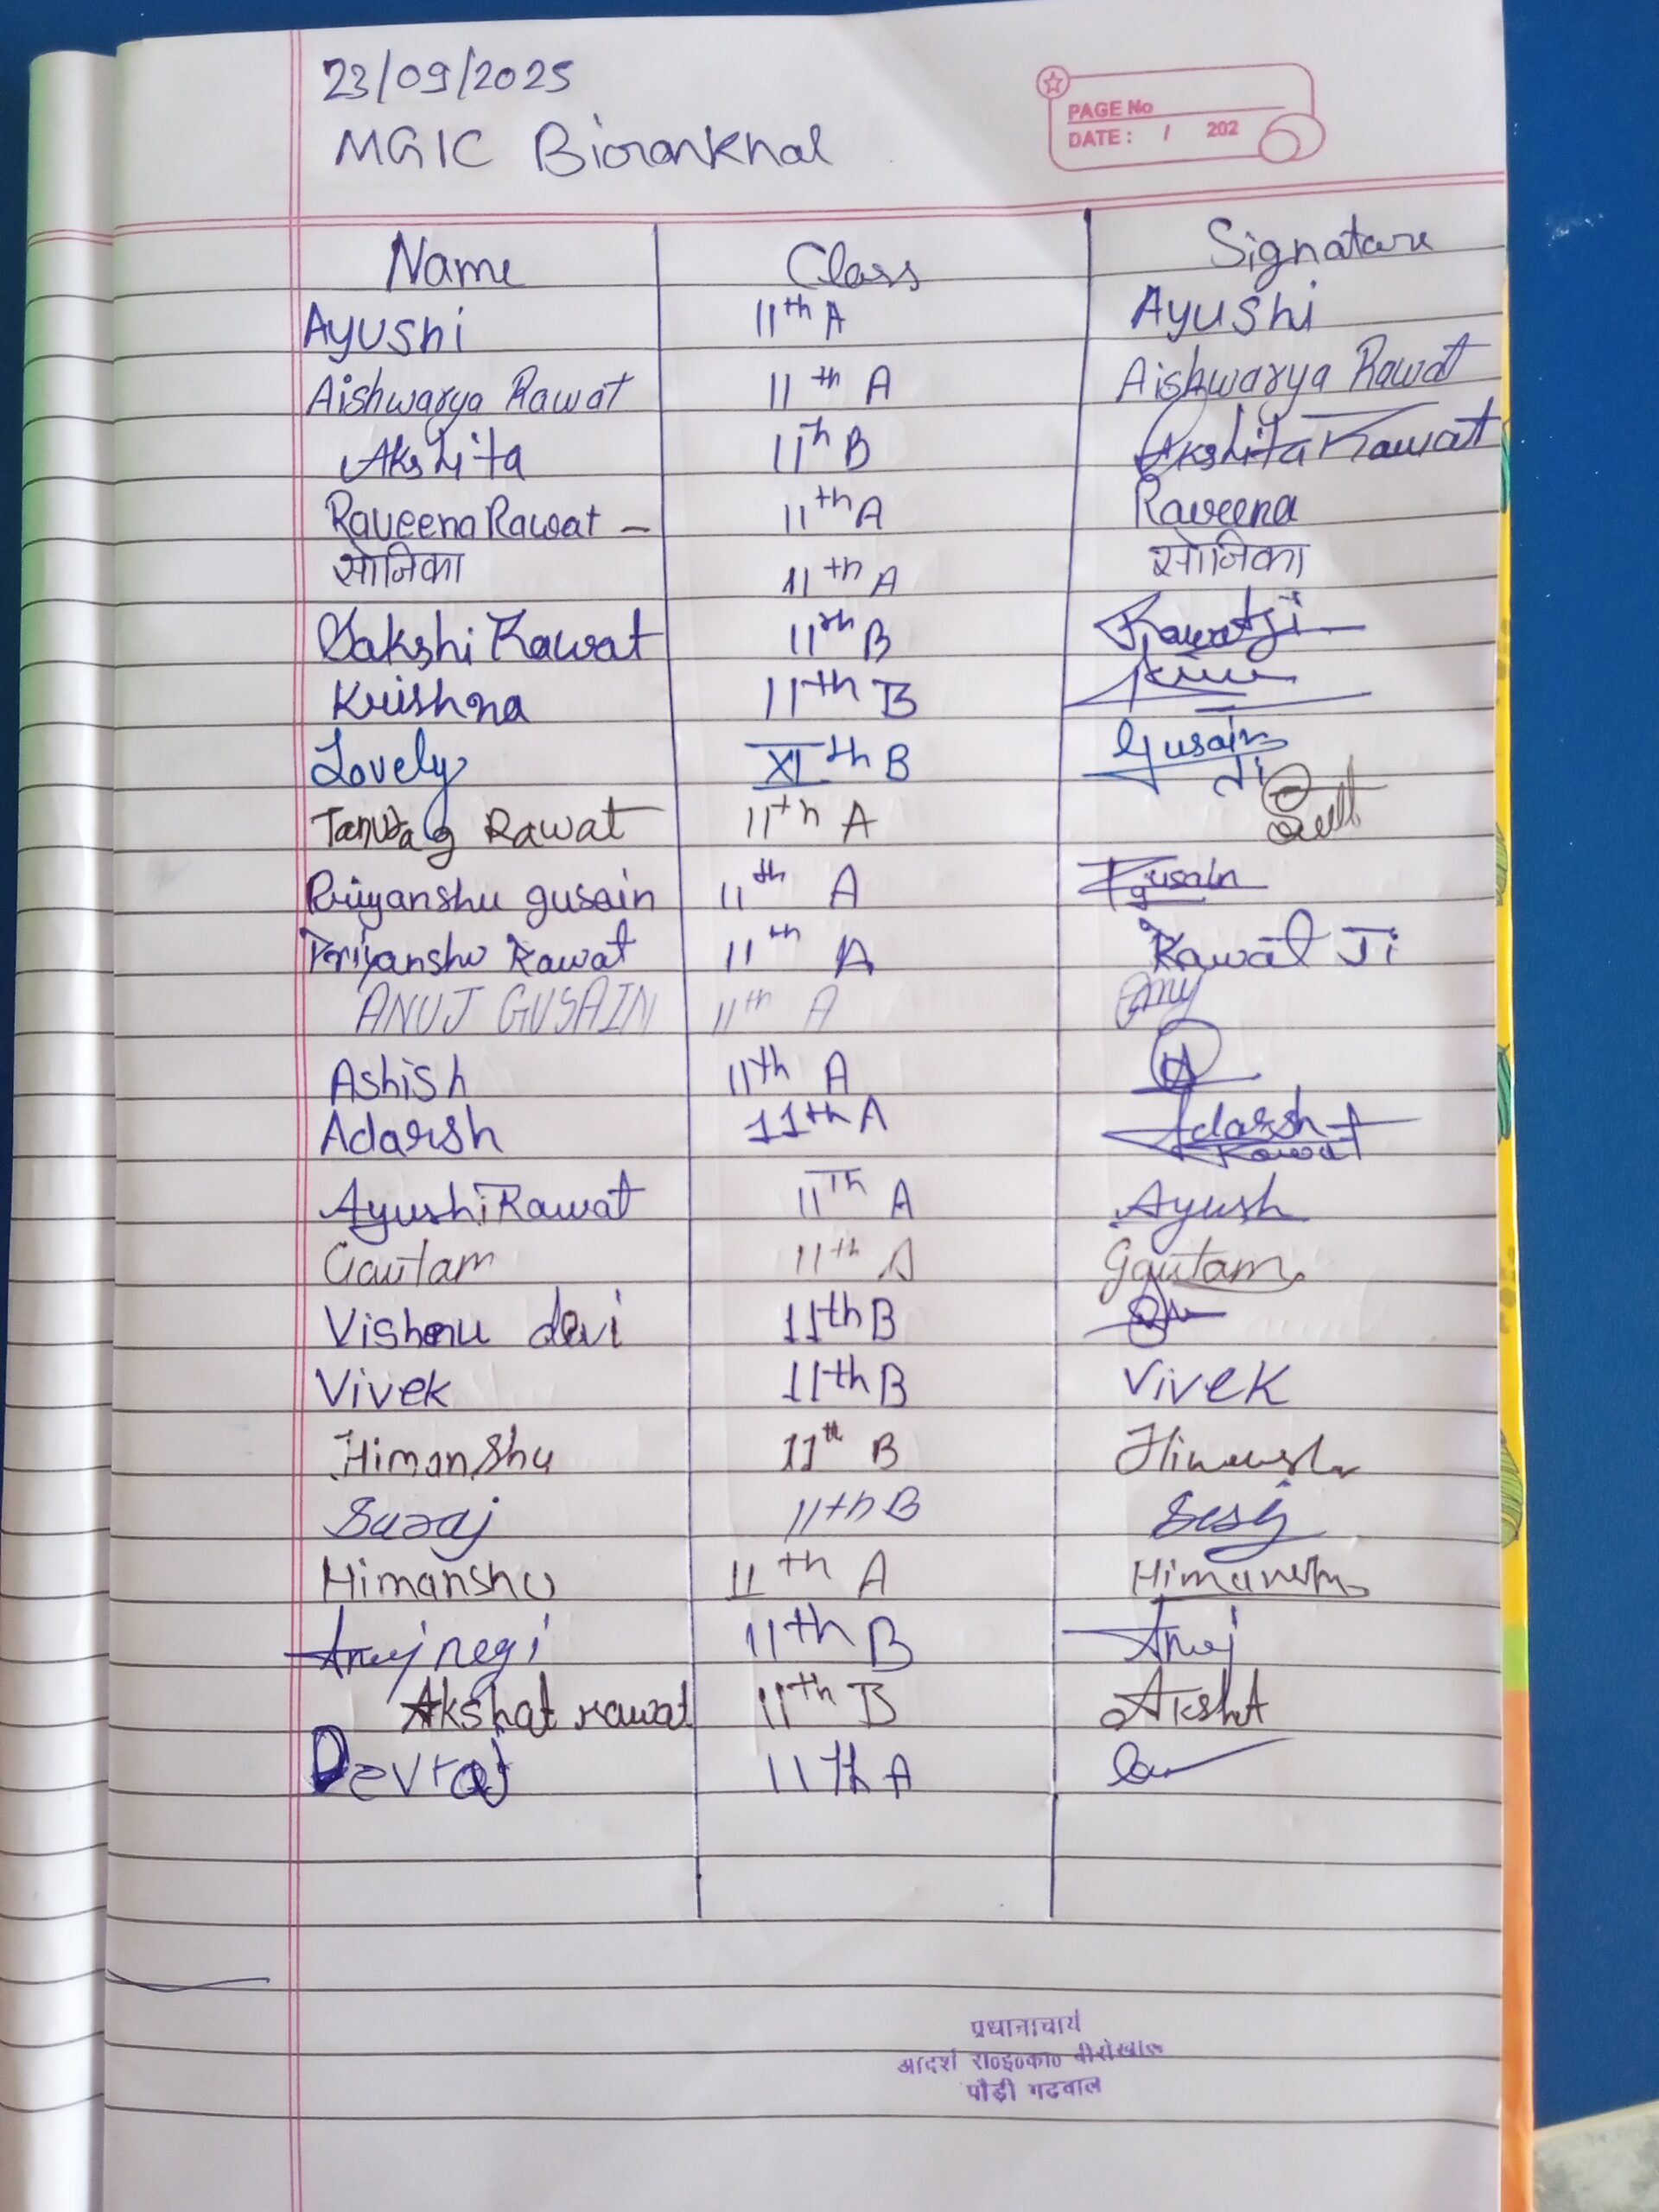 23/09/2025
MGIC Bironkhal
PAGE No
DATE : / 202
Name Class Signature
Ayushi 11th A Ayushi
Aishwarya Rawat 11th A Aishwarya Rawat
Akshita 11th B Akshita Rawat
Raveena Rawat - 11th A Raveena
सोनिका 11th A सोनिका
Sakshi Rawat 11th B Rawat Ji
Krishna 11th B
Lovely XIth B Gusain Ji
Rawat 11th A
Priyanshu gusain 11th A gusain
Priyanshu Rawat 11th A Rawat Ji
ANUJ GUSAIN 11th A Anuj
Ashish 11th A A
Adarsh 11th A Adarsh Rawat
Ayushi Rawat 11Th A Ayush
Gautam 11th A Gautam
Vishnu devi 11th B
Vivek 11th B Vivek
Himanshu 11th B Himansh
Suraj 11th B
Himanshu 11th A Himanshu
Anuj negi 11th B Anuj
Akshat rawat 11th B Aksht
Devraj 11th A
प्रधानाचार्य
आदर्श रा०इ०का० बीरोंखाल
पौड़ी गढवाल